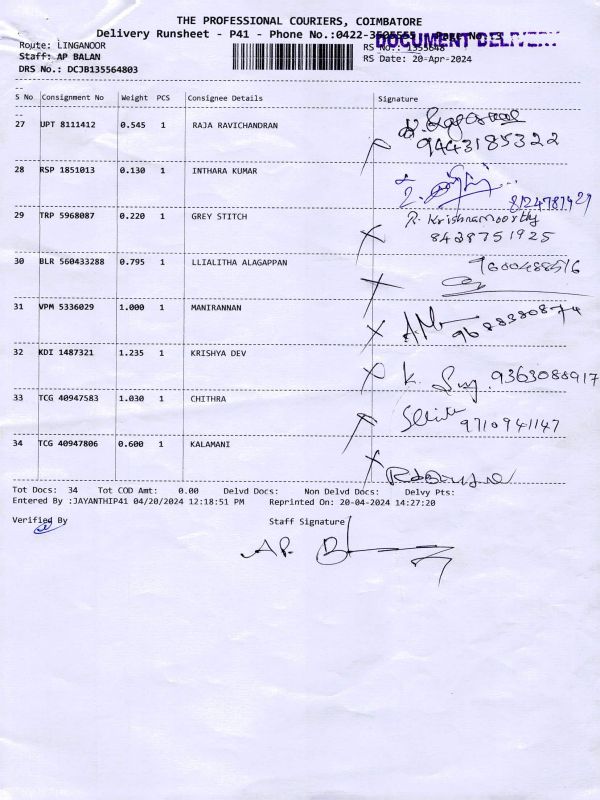 THE PROFESSIONAL COURIERS, COIMBATORE
Delivery Runsheet - P41 - Phone No.:0422- Page No.:3
DOCUMENT DELIVERY
Route: LINGANOOR
RS No.: 1355648
Staff: AP BALAN
RS Date: 20-Apr-2024
DRS No.: DCJB135564803
S No Consignment No Weight PCS Consignee Details Signature
27 UPT 8111412 0.545 1 RAJA RAVICHANDRAN
9443185322
28 RSP 1851013 0.130 1 INTHARA KUMAR
8124787429
29 TRP 5968087 0.220 1 GREY STITCH R. Krishnamoorthy
8428751925
30 BLR 560433288 0.795 1 LLIALITHA ALAGAPPAN 9600488516
31 VPM 5336029 1.000 1 MANIRANNAN
9688380874
32 KDI 1487321 1.235 1 KRISHYA DEV K. 9363088917
33 TCG 40947583 1.030 1 CHITHRA
9710941147
34 TCG 40947806 0.600 1 KALAMANI
Tot Docs: 34 Tot COD Amt: 0.00 Delvd Docs: Non Delvd Docs: Delvy Pts:
Entered By :JAYANTHIP41 04/20/2024 12:18:51 PM Reprinted On: 20-04-2024 14:27:20
Verified By Staff Signature
AP. B